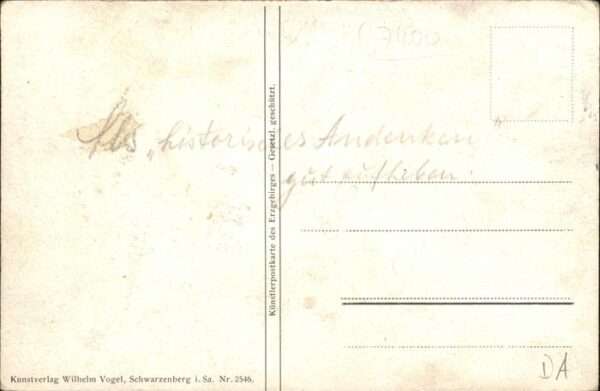 Als „historisches Andenken
gut aufheben.
Künstlerpostkarte des Erzgebirges — Gesetzl. geschützt.
Kunstverlag Wilhelm Vogel, Schwarzenberg i. Sa. Nr. 2546.
DA